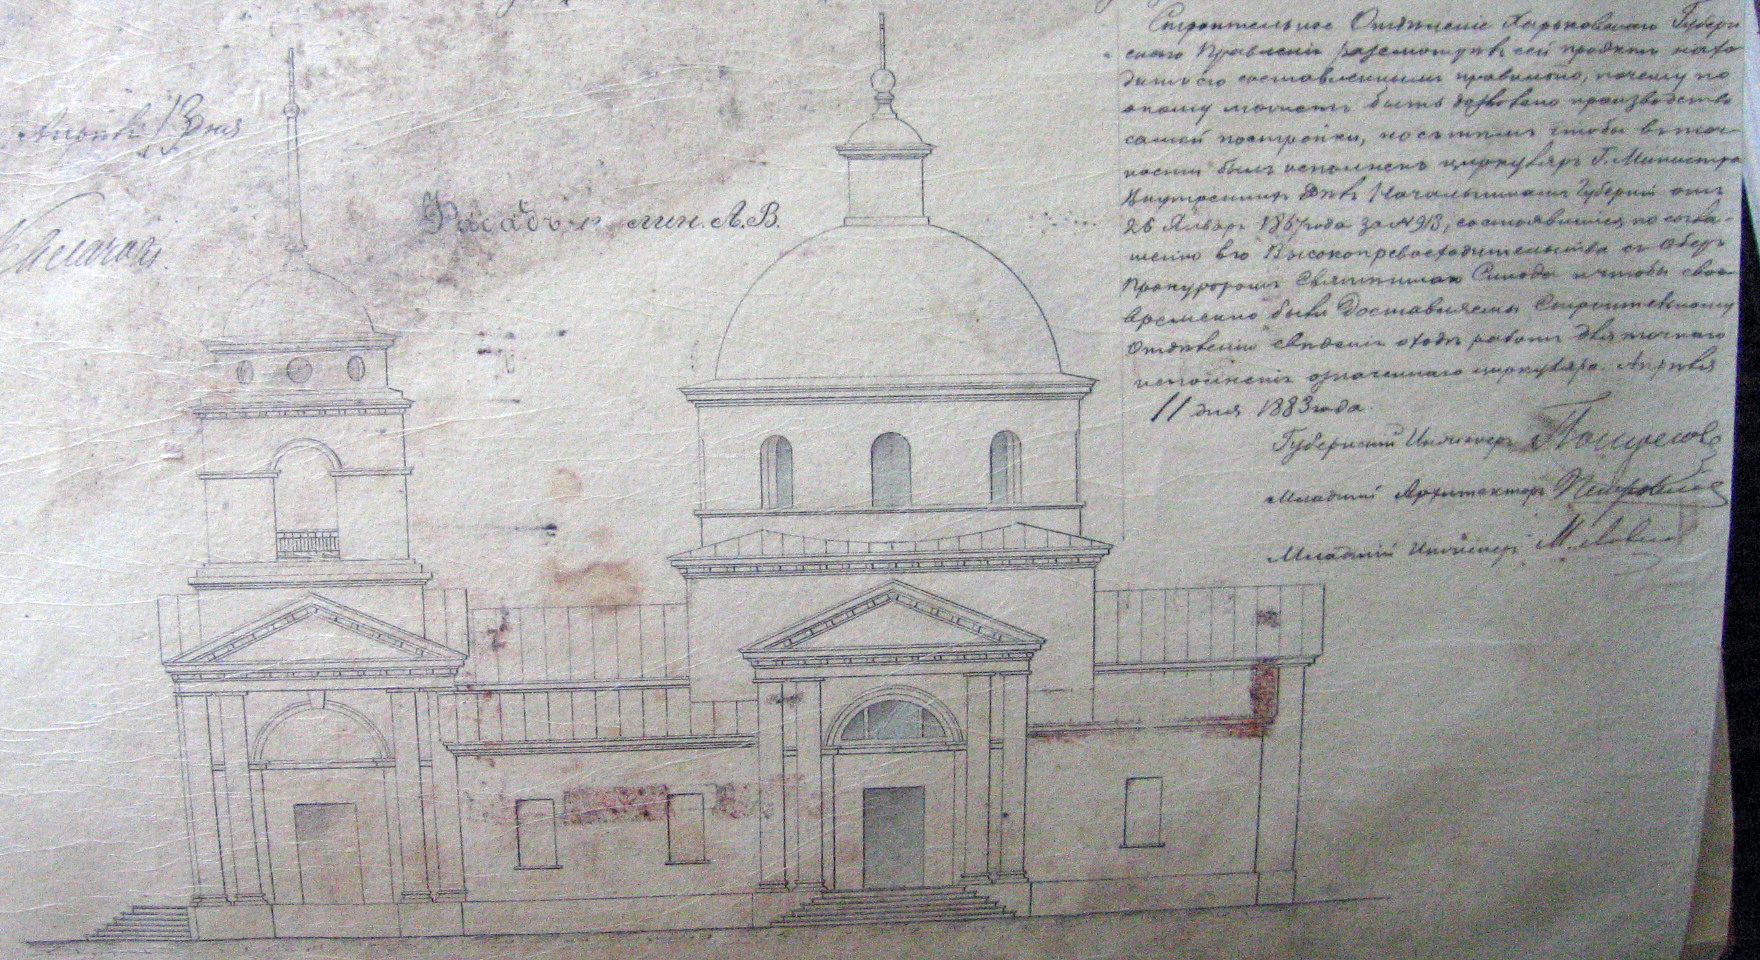 Фасадъ по лин. А.В.
Строительное Отдѣленіе Харьковскаго Губерн
скаго Правленія разсмотрѣвъ сей проэктъ нахо
дитъ его составленнымъ правильно, почему по
оному можетъ быть дозволено производство
самой постройки, но съ тѣмъ чтобы въ точ-
ности былъ исполненъ циркуляръ Г. Министра
Внутреннихъ Дѣлъ Начальникамъ Губерній отъ
26 Января 1867 года за № 913, состоявшійся по согла-
шенію Его Высокопревосходительства съ Оберъ
Прокуроромъ Святѣйшаго Синода и чтобы свое-
временно были доставляемы Строительному
Отдѣленію свѣденія о ходѣ работъ для точнаго
исполненія означеннаго циркуляра. Апрѣля
11 дня 1883 года.
Губернскій Инженеръ
Младшій Архитекторъ
Младшій Инженеръ